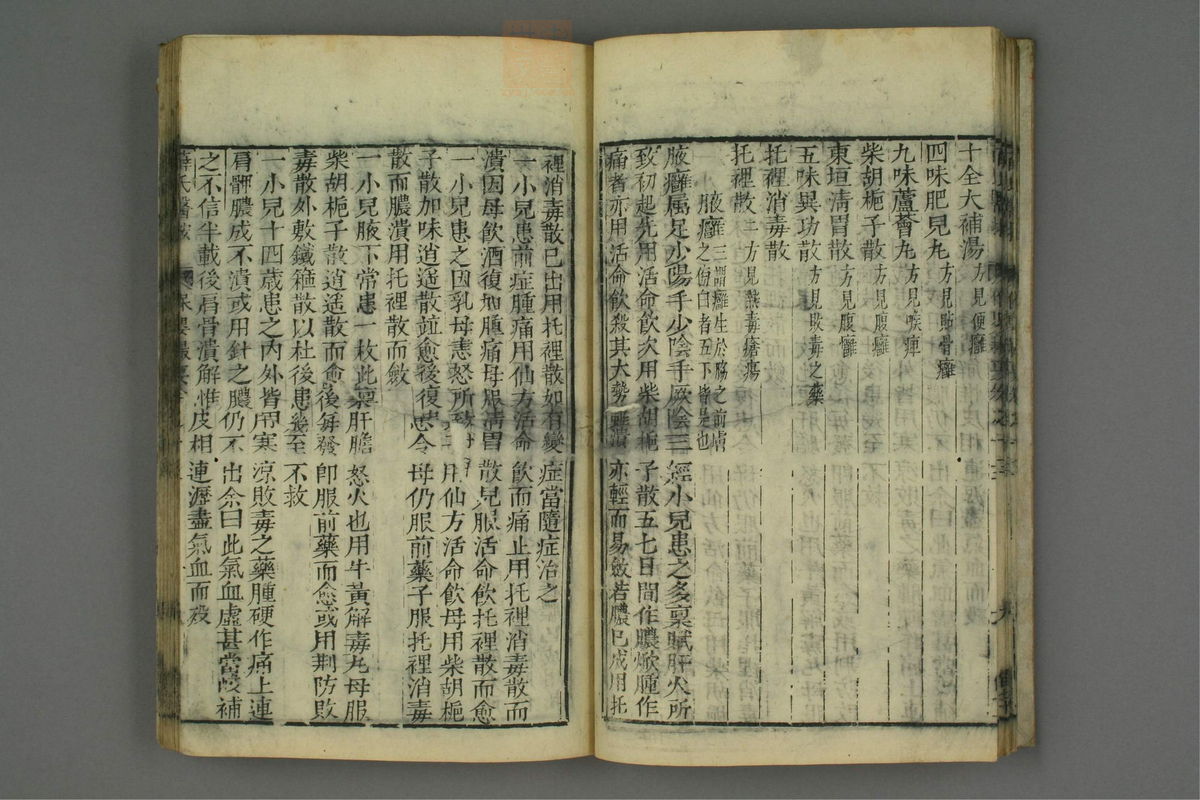 十全大補湯方見便癰
四味肥兒丸方見貼骨癰
九味蘆薈丸方見喉痺
柴胡梔子散方見腹癰
東垣清胃散方見腹癰
五味異功散方見敗毒之藥
托裡消毒散
托裡散二方見熱毒瘡瘍
腋癰三謂癰生於脇之前膚
腋癰之傍曰者五下皆是也
腋癰属足少陽手少陰手厥陰三經小兒患之多稟賦肝火所
致初起先用活命飲次用柴胡梔子散五七日間作膿焮腫作
痛者亦用活命飲殺其大勢雖潰亦輕而易斂若膿已成用托
裡消毒散已出用托裡散如有變症當隨症治之
一小兒患前症腫痛用仙方活命飲而痛止用托裡消毒散而
潰因母飲酒復加腫痛母服清胃散兒服活命飲托裡散而愈
一小兒患之因乳母恚怒所致用仙方活命飲母用柴胡梔
子散加味逍遥散並愈後復患令母仍服前藥子服托裡消毒
散而膿潰用托裡散而斂
一小兒腋下常患一枚此稟肝膽怒火也用牛黃解毒丸母服
柴胡梔子散逍遥散而愈後每發卽服前藥而愈或用荆防敗
毒散外敷鐵箍散以杜後患幾至不救
一小兒十四歲患之內外皆用寒涼敗毒之藥腫硬作痛上連
肩胛膿成不潰或用針之膿仍不出余曰此氣血虛甚當峻補
之不信半載後肩骨潰解惟皮相連瀝盡氣血而歿
薛氏醫